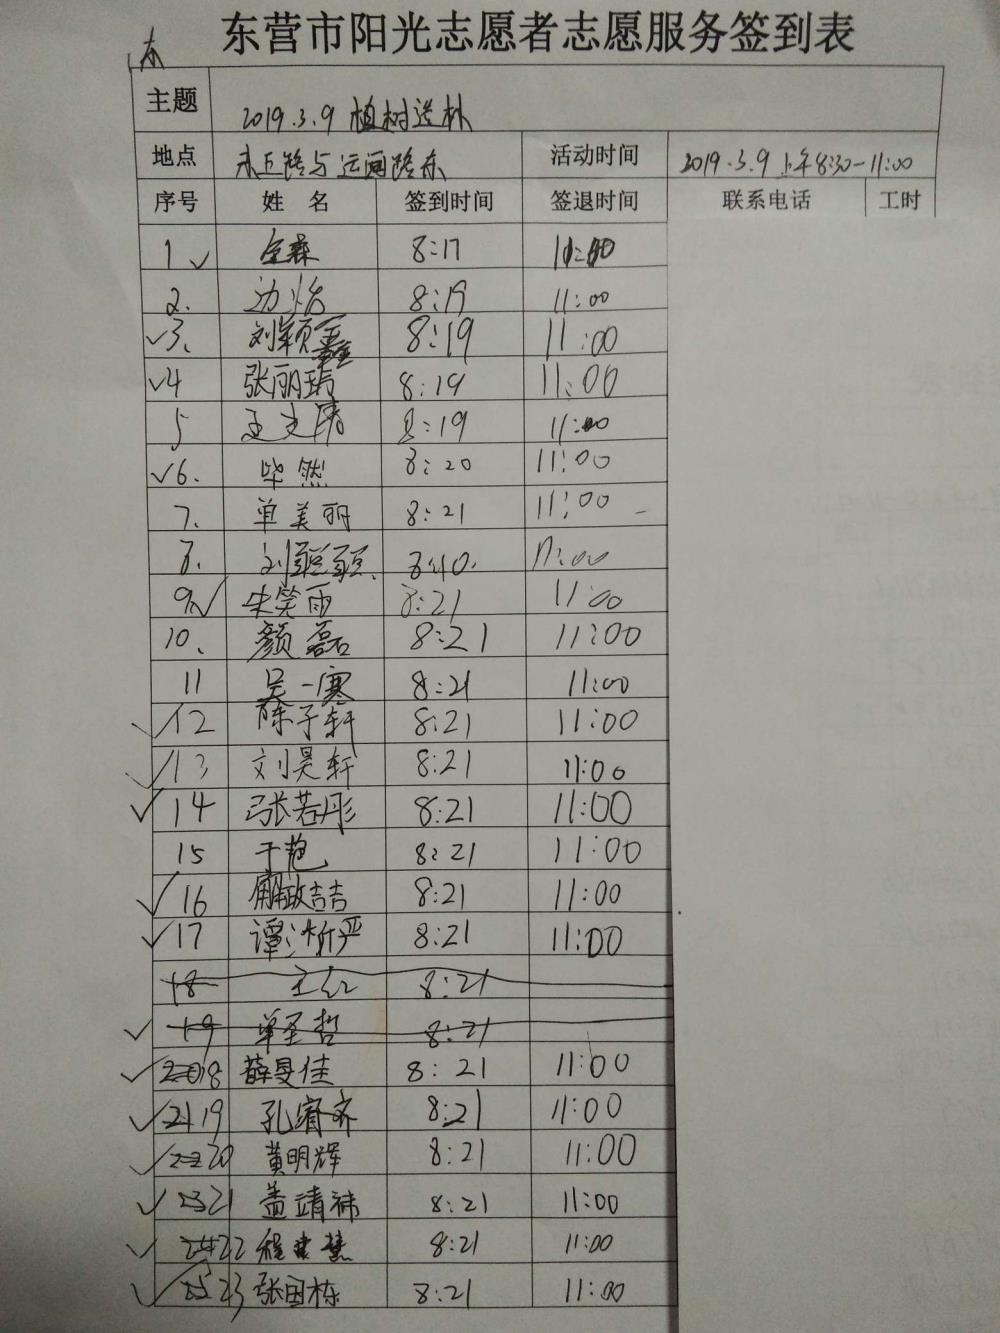 东营市阳光志愿者志愿服务签到表
东
主题 2019.3.9 植树送补
地点 路与运河路东 活动时间 2019.3.9 上午8:30-11:00
序号 姓 名 签到时间 签退时间 联系电话 工时
1 ✓ 8:17 11:00
2. 边 8:19 11:00
✓3. 刘颖鑫 8:19 11:00
✓4 张丽 8:19 11:00
5 8:19 11:00
✓6. 毕然 8:20 11:00
7. 单美丽 8:21 11:00
8. 刘 8:40. 11:00
9. ✓ 朱笑雨 8:21 11:00
10. 颜磊 8:21 11:00
11 吴一寒 8:21 11:00
✓12 陈子轩 8:21 11:00
✓13 刘昊轩 8:21 11:00
✓14 张若彤 8:21 11:00
15 于艳 8:21 11:00
✓16 8:21 11:00
✓17 谭 8:21 11:00
18 王红 8:21
✓19 单圣哲 8:21
✓2018 薛曼佳 8:21 11:00
✓2119 孔 齐 8:21 11:00
✓2220 黄明辉 8:21 11:00
✓2321 盖靖祎 8:21 11:00
✓2422 程 慧 8:21 11:00
✓2523 张国栋 8:21 11:00